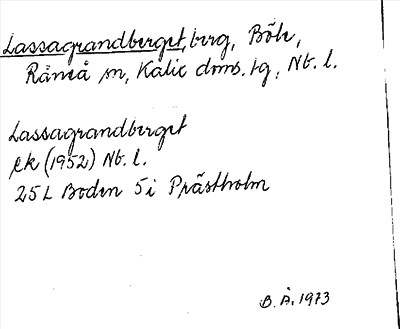 Lassagrandberget, berg, Böle,
Råneå sn, Kalix doms. tg, Nb. l.
Lassagrandberget
ek (1952) Nb. l.
25 L Boden 5i Prästholm
B. Å. 1973